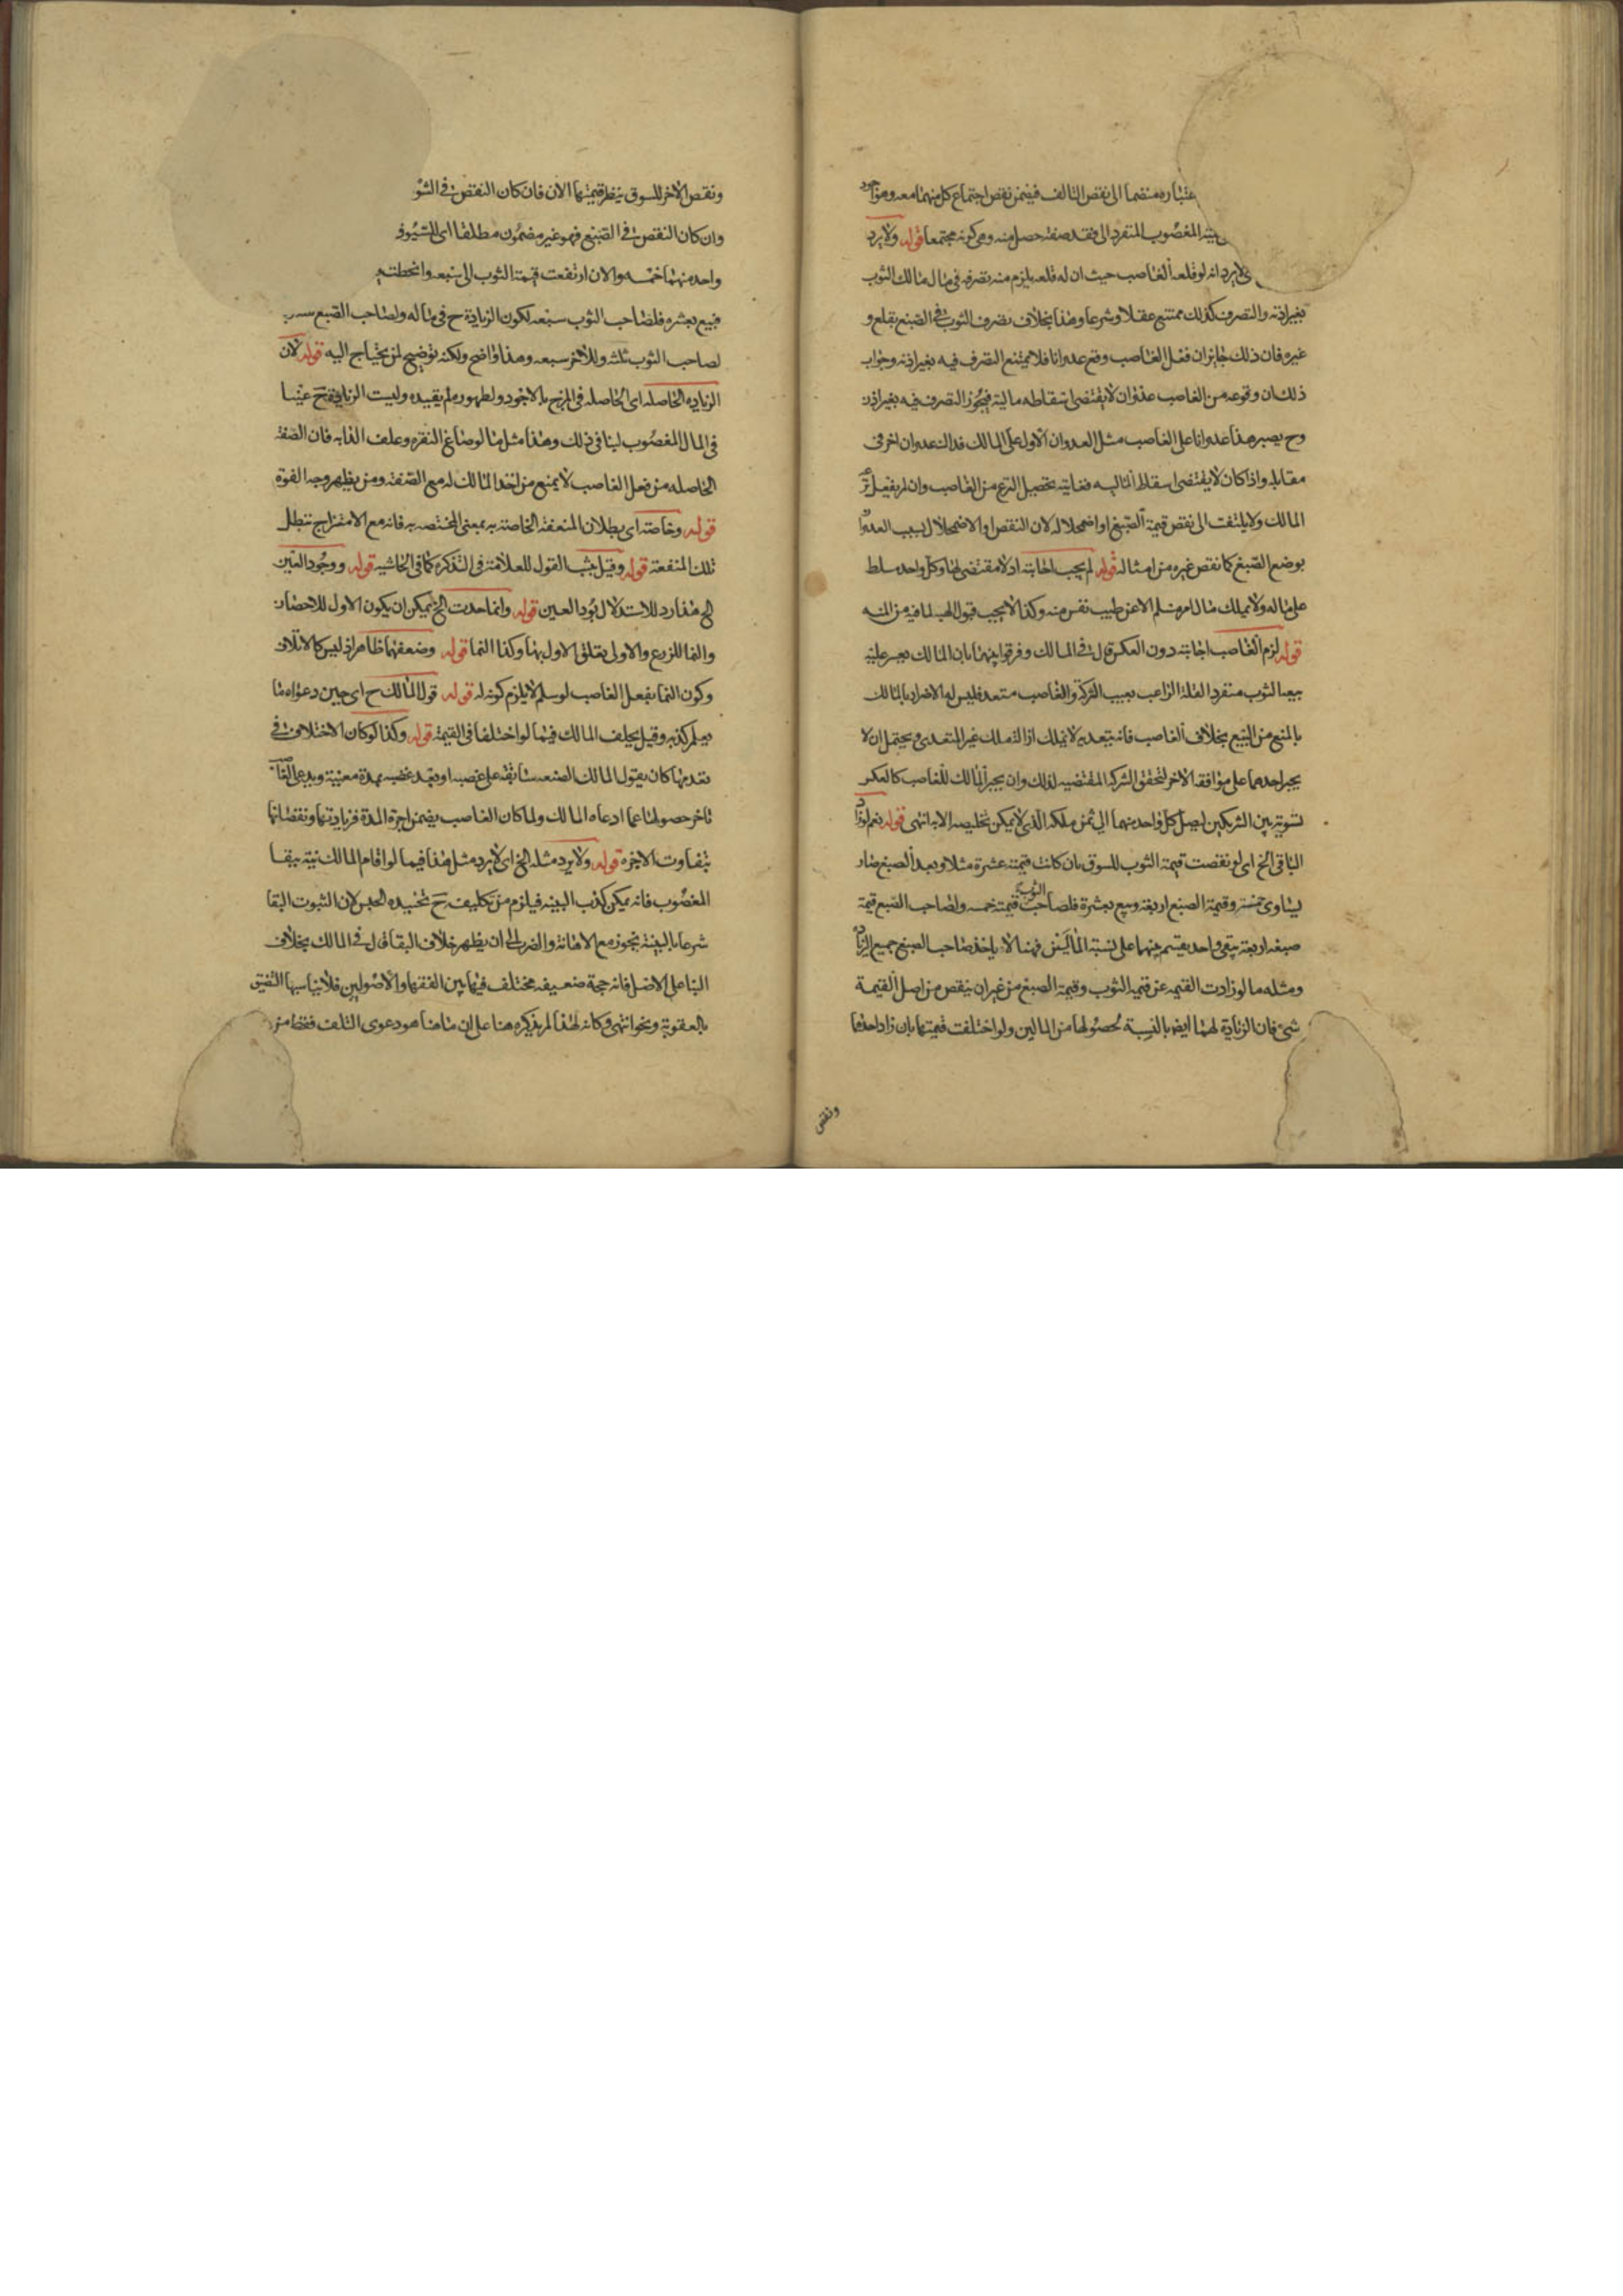 اعتباره منضما الى نقص التالف فيضمن نقص اجتماع كل منهما معه وهو
المغصوب المنفرد الى فقد صفته حصل منه وهي كونه مجتمعا قوله ولا يرد
لا يرد انه لو قلعه الغاصب حيث ان له قلعه يلزم منه تصرفه في مال مالك الثوب
بغير اذنه والتصرف كذلك ممتنع عقلا وشرعا وهذا بخلاف تصرف الثوب في الصبغ بقلع و
غيره فان ذلك جايز ان فعل الغاصب وقع عدوانا فلا يمتنع التصرف فيه بغير اذنه وجواب
ذلك ان وقوعه من الغاصب عدوان لا يقتضى اسقاط ماليته فيجوز التصرف فيه بغير اذن
وح يصير هذا عدوانا على الغاصب مثل العدوان الاول على المالك فذلك عدوان اخر في
مقابله واذا كان لا يقتضى اسقاط المالية فغايته تحصيل النزع من الغاصب وان لم يفعل
المالك ولا يلتفت الى نقص قيمة الصبغ او اضمحلاله لان النقص او الاضمحلال بسبب العدوان
بوضع الصبغ كما نقص غيره من امثاله قوله لم يجب اجابته اذ لا مقتضى لها وكل واحد مسلط
على ماله ولا يملك مال امرء مسلم الا عن طيب نفس منه وكذا لا يجب قبول الهبة لما فيه من المنة
قوله لزم الغاصب اجابته دون العكس قال في المسالك وفرقوا بينهما بان المالك يعسر عليه
بيع الثوب منفردا لقلة الراغب بعيب الشركة والغاصب متعد فليس له الاضرار بالمالك
بالمنع من البيع بخلاف الغاصب فانه بتعديه لا يملك ازالة ملك غير المتعدى ويحتمل ان لا
يجبر احدهما على موافقة الاخر لتحقق الشركة المقتضية لذلك وان يجبر المالك للغاصب كالعكس
تسوية بين الشريكين ليصل كل واحد منهما الى ثمن ملكه الذى لا يمكن تخليصه الا به انتهى قوله نعم لو زاد
الباقى الخ اى لو نقصت قيمة الثوب للسوق بان كانت قيمته عشرة مثلا وبعد الصبغ صار
يساوى خمسة وقيمة الصبغ اربعة وبيع بعشرة فلصاحب الثوب قيمته خمسة ولصاحب الصبغ قيمة
صبغه اربعة يبقى واحد يقسم بينهما على نسبة المالين فهنا لا ياخذ صاحب الصبغ جميع الزايد
ومثله ما لو زادت القيمة عن قيمة الثوب وقيمة الصبغ من غير ان ينقص من اصل القيمة
شئ فان الزيادة لهما ايضا بالنسبة لحصولها من المالين ولو اختلفت قيمتهما بان زاد احدهما
ونقص
ونقص الاخر للسوق ينظر قيمتهما الان فان كان النقص في الثو
وان كان النقص في الصبغ فهو غير مضمون مطلقا اى للسوق
واحد منهما خمسه والان ارتفعت قيمة الثوب الى سبعه وانحطت
فبيع بعشره فلصاحب الثوب سبعه لكون الزيادة ح في ماله ولصاحب الصبغ
لصاحب الثوب ثلثه وللاخر سبعه وهذا واضح ولكنه توضيح لمن يحتاج اليه قوله لان
الزياده الحاصله اى الحاصله في المزج بالاجود ولظهوره لم يقيده وليست الزيادة ح عينا
في المال المغصوب لينافى ذلك وهذا مثل ما لو صاغ النقره وعلف الدابه فان الصفة
الحاصله من فعل الغاصب لا يمنع من اخذ المالك له مع الصفة ومن يظهر وجه القوة
قوله وخاصته اى بطلان المنفعة الخاصة به بمعنى المختصه به فانه مع الامتزاج تبطل
تلك المنفعة قوله وقيل يثبت القول للعلامة في التذكرة كما في الحاشيه قوله ووجود العين
الخ هذا رد للاستدلال برد العين قوله وانما احدث الخ يمكن ان يكون الاول للاحضان
والنما للزرع والاولى تعلق الاول بهما وكذا النما قوله وضعفهما ظاهر اذ ليس كالاتلاف
وكون النما بفعل الغاصب لو سلم لا يلزم كونه له قوله قول المالك ح اى حين دعواه ما
يعلم كذبه وقيل يحلف المالك فيما لو اختلفا في القيمة قوله وكذا لو كان الاختلاف في
تقدمها كان يقول المالك الصنعه سابقة على غصبه او بعد غصبه بمدة معينة ويدعى الغاصب
تاخر حصولها عما ادعاه المالك ولما كان الغاصب يضمن اجرة المدة فزيادتها ونقصانها
بتفاوت الاجره قوله ولا يرد مثله الخ اى لا يرد مثل هذا فيما لو اقام المالك بينة ببقا
المغصوب فانه يمكن كذب البينه فيلزم من تكليفه ح تخليده الحبس لان الثبوت البقا
شرعا بالبينة يجوز مع الاهانة والضرب الى ان يظهر خلاف البقا قال في المسالك بخلاف
البنا على الاصل فانه حجة ضعيفه مختلف فيها بين الفقها والاصولين فلا يناسبها التضيق
بالعقوبة ونحوا انتهى وكانه لهذا لم يذكره هنا على ان ما هنا هو دعوى التلف فقط من